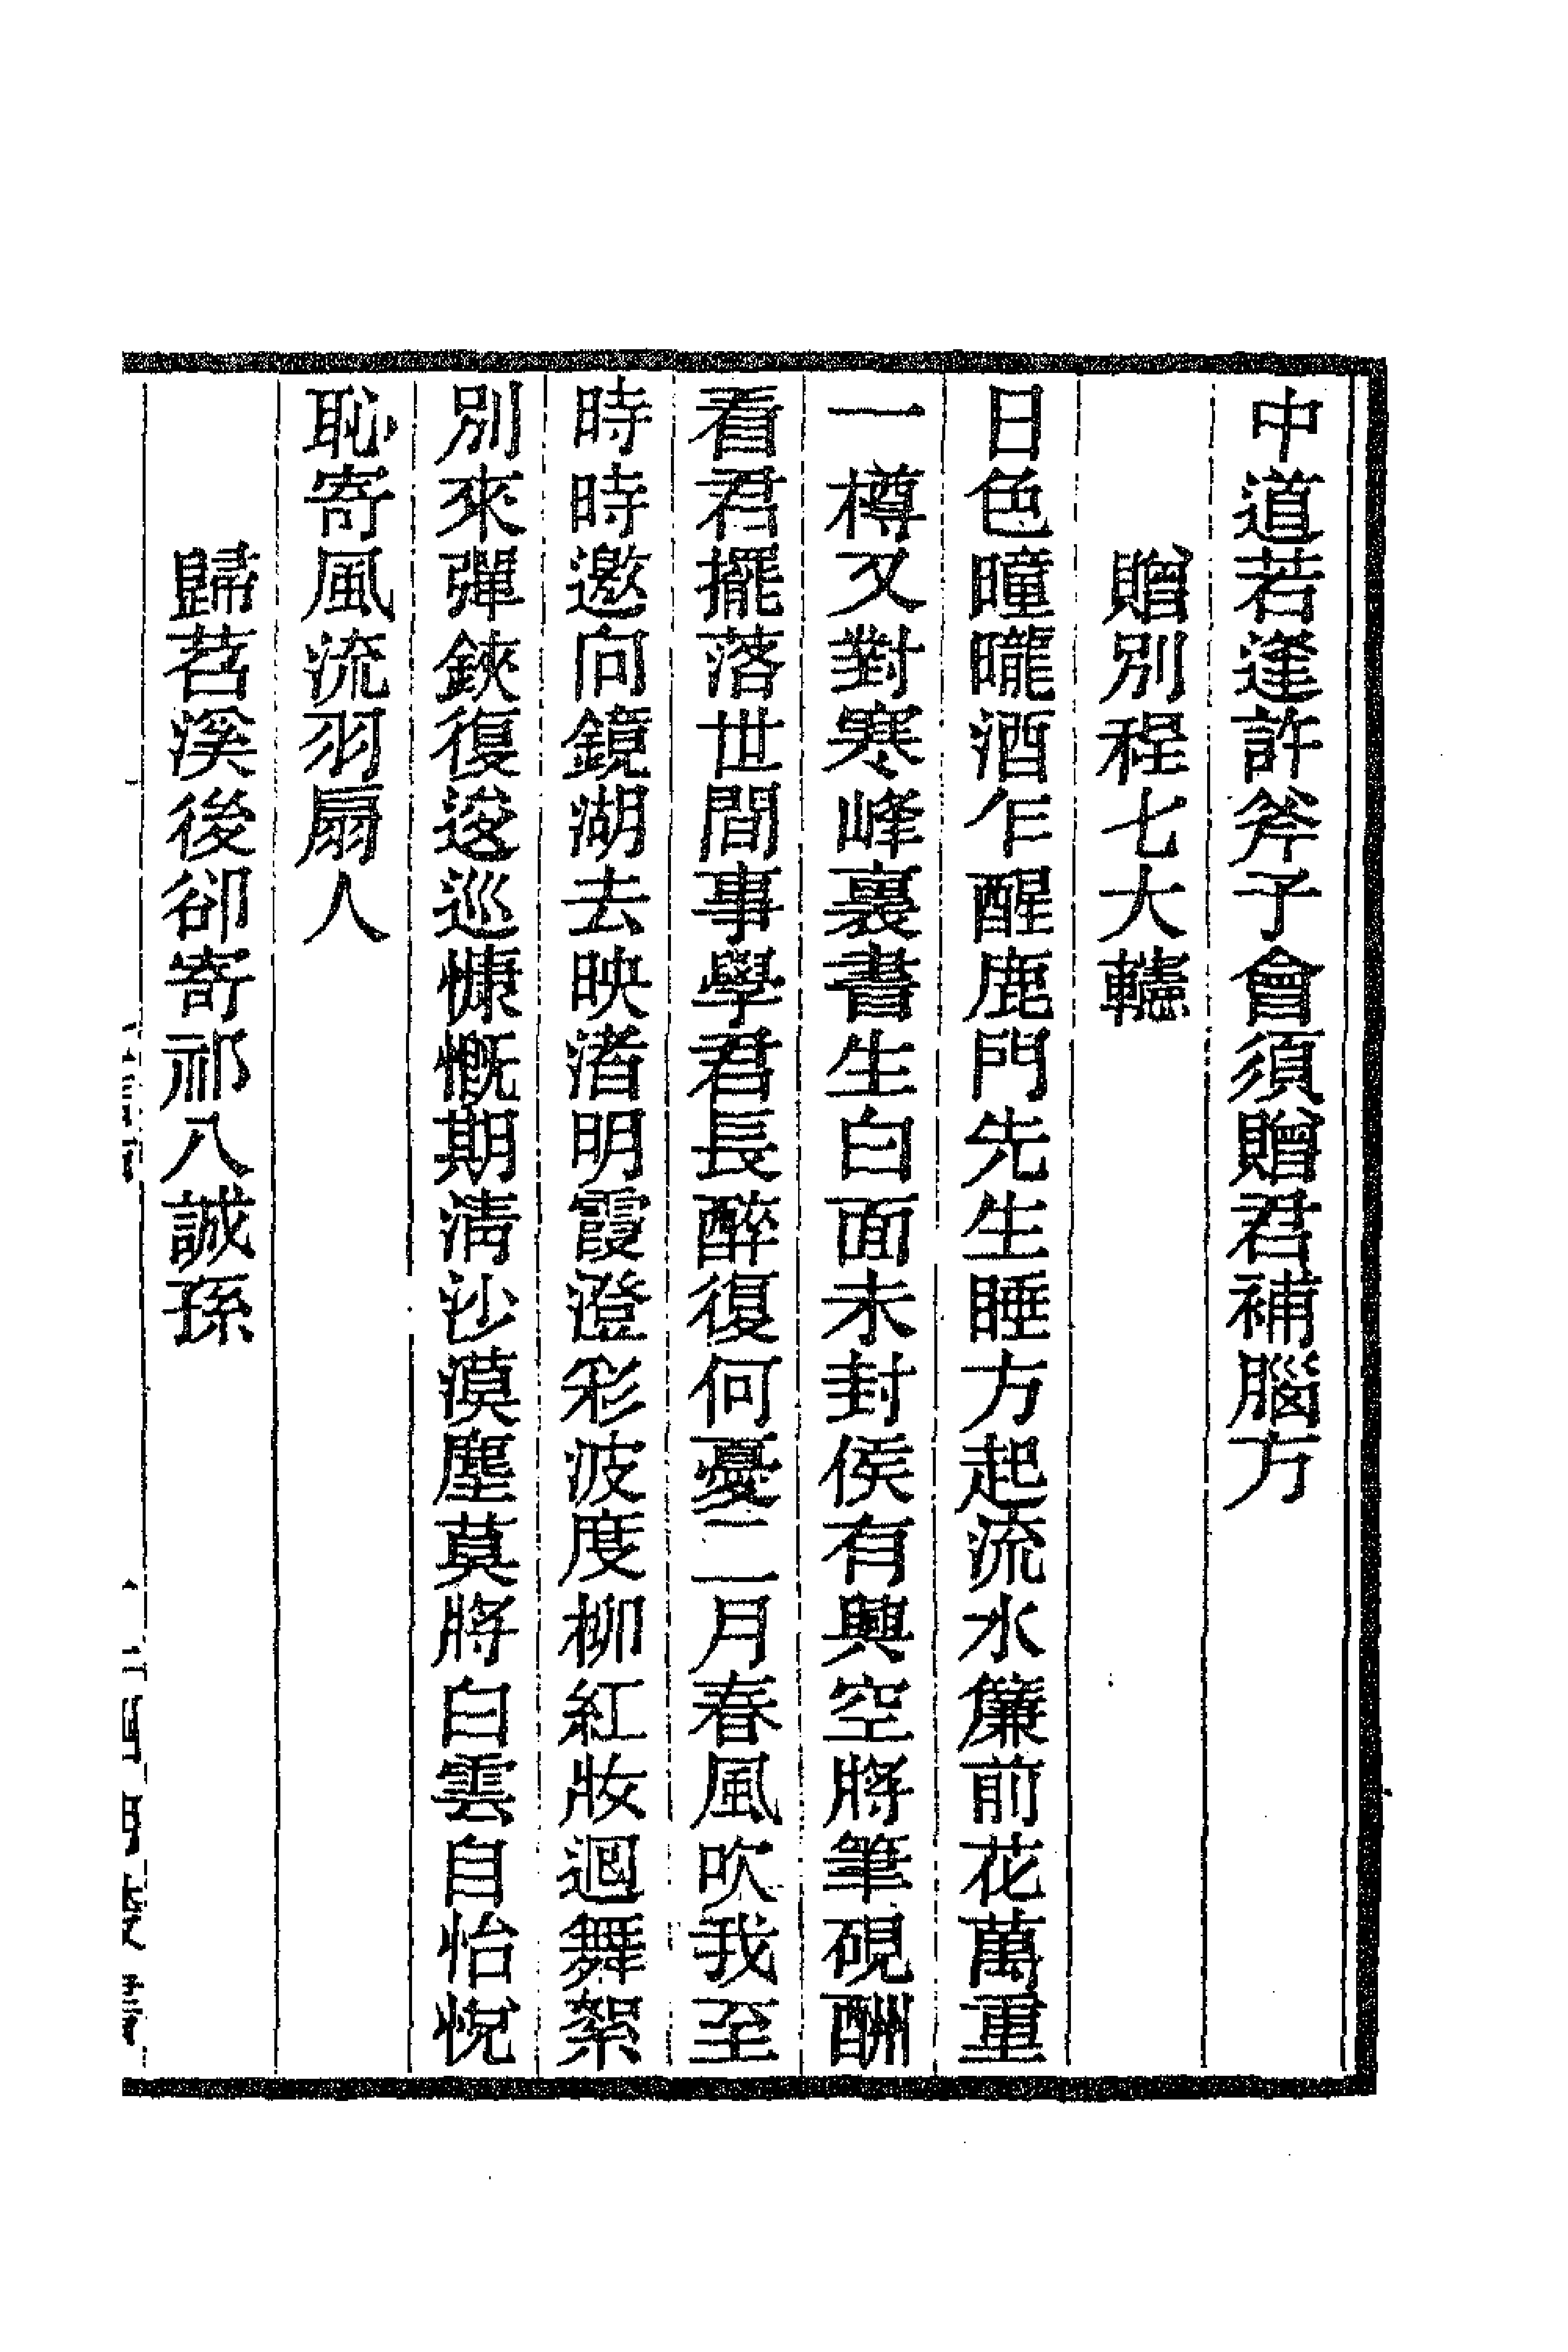 中道若逢許斧子會須贈君補腦方
贈別程七大轤
日色曈曨酒乍醒鹿門先生睡方起流水簾前花萬重
一樽又對寒峰裏書生白面未封侯有興空將筆硯酬
看君擺落世間事學君長醉復何憂二月春風吹我至
時時邀向鏡湖去映渚明霞澄彩波度柳紅妝迴舞絮
別來彈鋏復逡巡慷慨期淸沙漠塵莫將白雲自怡悅
恥寄風流羽扇人
歸苕溪後卻寄祁八誠孫